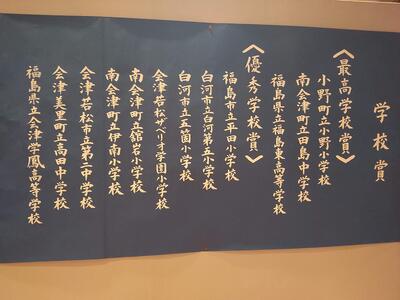 学校賞
《最高学校賞》
小野町立小野小学校
南会津町立田島中学校
福島県立福島東高等学校
《優秀学校賞》
福島市立平田小学校
白河市立白河第五小学校
白河市立五箇小学校
会津若松ザベリオ学園小学校
南会津町立舘岩小学校
南会津町立伊南小学校
会津若松市立第二中学校
会津美里町立高田中学校
福島県立会津学鳳高等学校